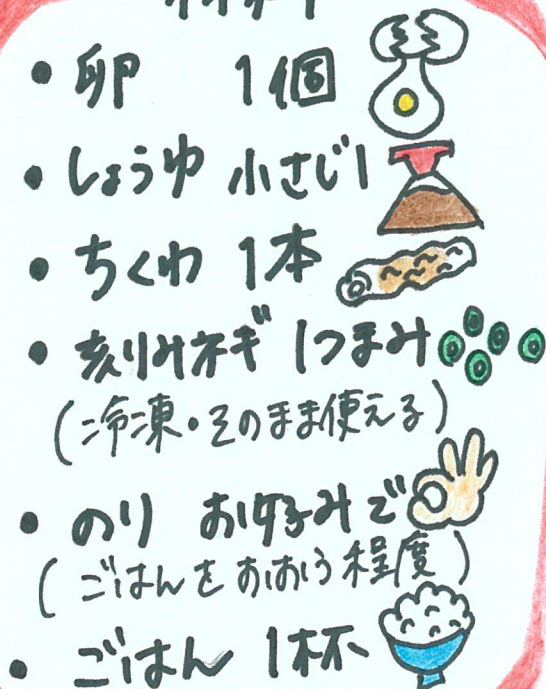 ・卵 1個
・しょうゆ 小さじ1
・ちくわ 1本
・刻みネギ 1つまみ
(冷凍・そのまま使える)
・のり お好みで
(ごはんをおおう程度)
・ごはん 1杯